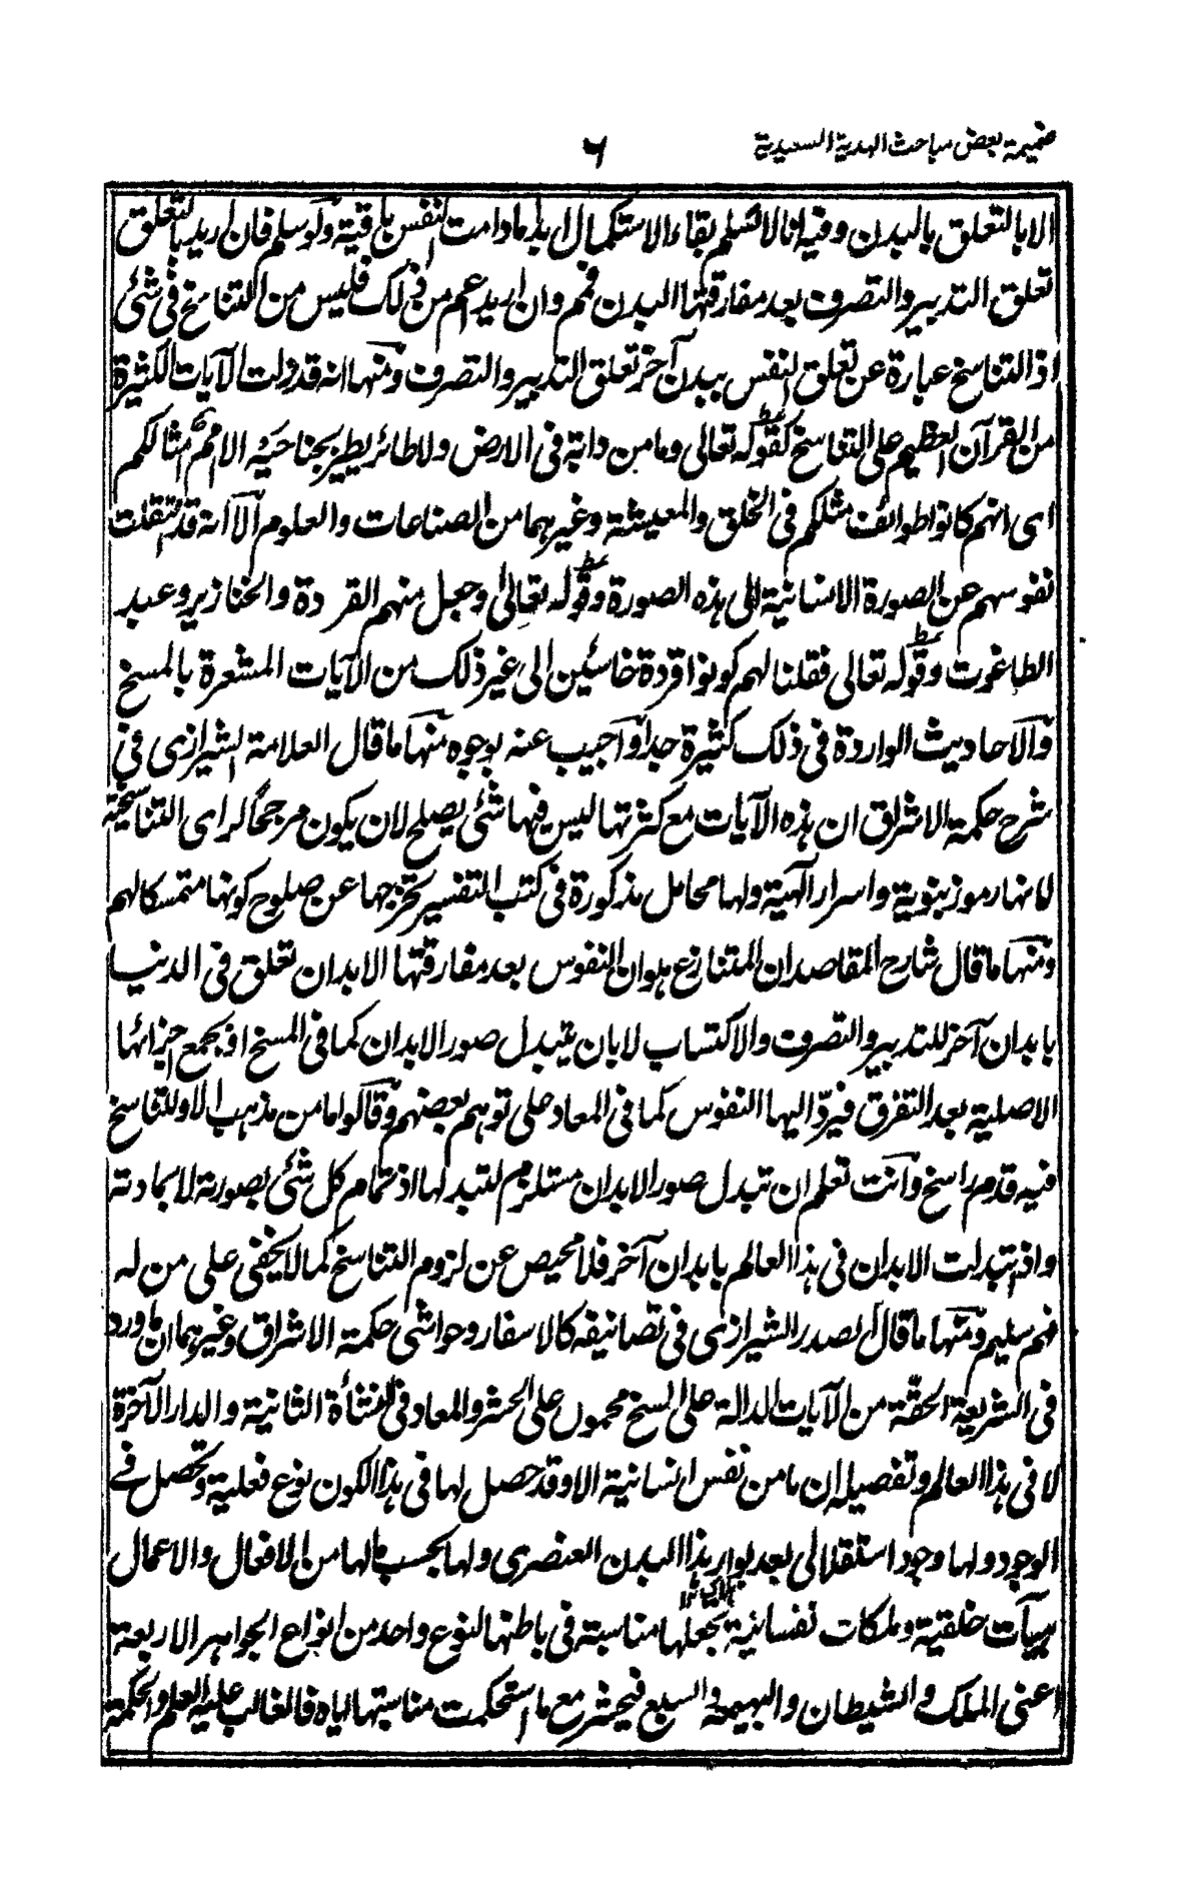 ضميمة بعض مباحث الهدية السعيدية
٦
الا بالتعلق بالبدن وفيه انا لا نسلم بقاء الاستكمال ابدا ما دامت النفس باقية ولو سلم فان اريد بالتعلق
تعلق التدبير والتصرف بعد مفارقتها البدن فمم وان اريد اعم من ذلك فليس من التناسخ في شئ
اذ التناسخ عبارة عن تعلق النفس ببدن آخر تعلق التدبير والتصرف ومنها انه قد دلت الآيات الكثيرة
من القرآن العظيم على التناسخ كقوله تعالى وما من دابة في الارض ولا طائر يطير بجناحيه الا امم امثالكم
اى انهم كانوا طوائف مثلكم في الخلق والمعيشة وغيرهما من الصناعات والعلوم الا انه قد انتقلت
نفوسهم عن الصورة الانسانية الى هذه الصورة وقوله تعالى وجعل منهم القردة والخنازير وعبد
الطاغوت وقوله تعالى فقلنا لهم كونوا قردة خاسئين الى غير ذلك من الآيات المشعرة بالمسخ
والاحاديث الواردة في ذلك كثيرة جدا واجيب عنه بوجوه منها ما قال العلامة الشيرازى في
شرح حكمة الاشراق ان هذه الآيات مع كثرتها ليس فيها شئ يصلح لان يكون مرجحا لراى التناسخية
لانها رموز نبوية واسرار الهية ولها محامل مذكورة في كتب التفسير تخرجها عن صلوح كونها متمسكا لهم
ومنها ما قال شارح المقاصد ان المتنازع هو ان النفوس بعد مفارقتها الابدان تعلق في الدنيا
بابدان آخر للتدبير والتصرف والاكتساب لا بان يتبدل صور الابدان كما في المسخ او بجمع اجزائها
الاصلية بعد التفرق فيرد اليها النفوس كما في المعاد على توهم بعضهم وقالوا ما من مذهب الا وللتناسخ
فيه قدم راسخ وانت تعلم ان تبدل صور الابدان مستلزم لتبدلها اذ تمام كل شئ بصورته لا بمادته
واذ تبدلت الابدان في هذا العالم بابدان آخر فلا محيص عن لزوم التناسخ كما لا يخفى على من له
فهم سليم ومنها ما قال الصدر الشيرازى في تصانيفه كالاسفار وحواشى حكمة الاشراق وغيرهما ان ما ورد
في الشريعة الحقة من الآيات الدالة على المسخ محمول على الحشر والمعاد في النشأة الثانية والدار الآخرة
لا في هذا العالم وتفصيله ان ما من نفس انسانية الا وقد حصل لها في هذا الكون نوع فعلية وتحصل في
الوجود ولها وجود استقلالى بعد بوار هذا البدن العنصرى ولها بحسب ما لها من الافعال والاعمال
هيآت خلقية وملكات نفسانية تجعلها مناسبة في باطنها لنوع واحد من انواع الجواهر الاربعة
اعنى الملك والشيطان والبهيمة والسبع فيحشر مع ما استحكمت مناسبتها اياه فالغالب عليه العلم والحكمة